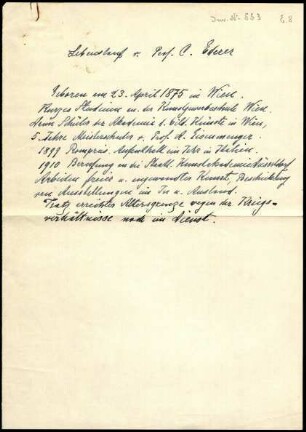 Inv. Nr. 533
Lebenslauf v. Prof. C. Ederer
Geboren am 23. April 1875 in Wien.
Kurzes Studium an der Kunstgewerbeschule Wien
dann Schüler der Akademie d. bild. Künste in Wien,
5 Jahre Meisterschüler v. Prof. A. Eisenmenger.
1899 Rompreis. Aufenthalt ein Jahr in Italien.
1910 Berufung an die Staatl. Kunstakademie Düsseldorf
Arbeiten freie u. angewandte Kunst, Beschickung
von Ausstellungen im In u. Ausland.
Trotz erreichter Altersgrenze wegen der Kriegs-
verhältnisse noch im Dienst.